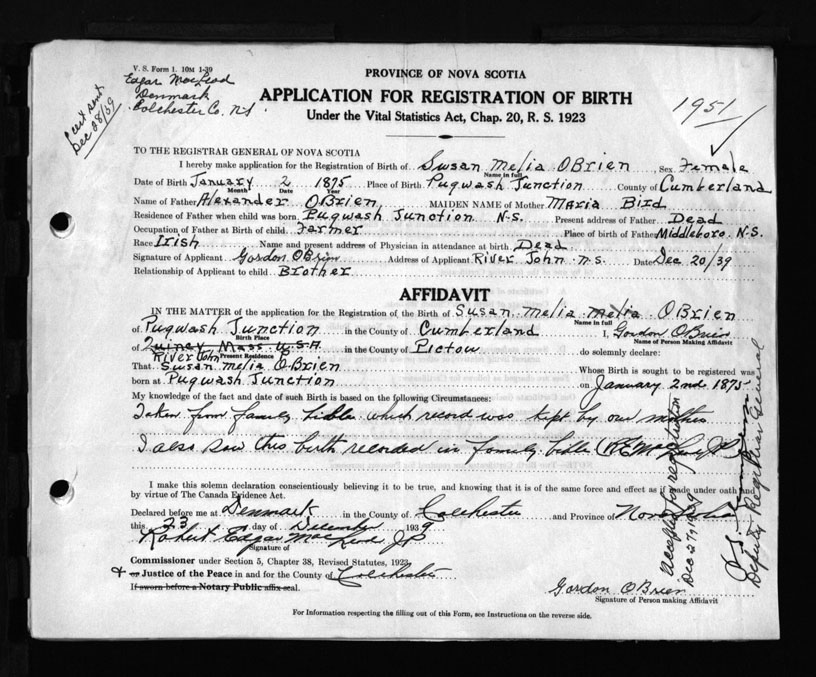 V. S. Form 1. 10M 1-39
Edgar MacLeod
Denmark
Colchester Co. N.S.
1 cert sent
Dec 28/39
PROVINCE OF NOVA SCOTIA
APPLICATION FOR REGISTRATION OF BIRTH
Under the Vital Statistics Act, Chap. 20, R. S. 1923
1951
TO THE REGISTRAR GENERAL OF NOVA SCOTIA
I hereby make application for the Registration of Birth of Susan Melia OBrien Sex Female
Name in full
Date of Birth January 2 1875 Place of Birth Pugwash Junction County of Cumberland
Month Day Year
Name of Father Alexander OBrien MAIDEN NAME of Mother Maria Bird
Residence of Father when child was born Pugwash Junction N.S. Present address of Father Dead
Occupation of Father at Birth of child Farmer Place of birth of Father Middleboro N.S.
Race Irish Name and present address of Physician in attendance at birth Dead
Signature of Applicant Gordon OBrien Address of Applicant River John N.S. Date Dec 20/39
Relationship of Applicant to child Brother
AFFIDAVIT
IN THE MATTER of the application for the Registration of the Birth of Susan Melia Melia OBrien
Name in full
of Pugwash Junction in the County of Cumberland I, Gordon OBrien
Birth Place
Name of Person Making Affidavit
of Quincy Mass U.S.A. in the County of Pictou do solemnly declare:
River John Present Residence
That Susan Melia OBrien Whose Birth is sought to be registered was
born at Pugwash Junction on January 2nd 1875
My knowledge of the fact and date of such Birth is based on the following Circumstances:
Taken from family bible which record was kept by our mother
I also saw this birth recorded in family bible (R E MacLeod J.P.)
I make this solemn declaration conscientiously believing it to be true, and knowing that it is of the same force and effect as if made under oath and
by virtue of The Canada Evidence Act.
Declared before me at Denmark in the County of Colchester and Province of Nova Scotia
this 23 day of December 1939
Robert Edgar MacLeod J.P.
Signature of
Commissioner under Section 5, Chapter 38, Revised Statutes, 1923
or Justice of the Peace in and for the County of Colchester
If sworn before a Notary Public affix seal.
Gordon OBrien
Signature of Person making Affidavit
Accepted for registration
Dec 27, 1939
Deputy Registrar General
For Information respecting the filling out of this Form, see Instructions on the reverse side.